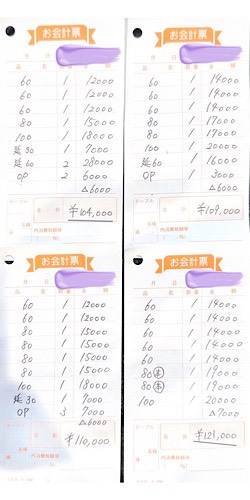 お会計票
月 日
品 名 数量 金 額
60 1 12000
60 1 12000
60 1 12000
80 1 15000
100 1 18000
延30 1 7000
延60 2 28000
OP 2 6000
△6000
テーブル
名様
合計 ¥104,000
お会計票
月 日
品 名 数量 金 額
60 1 14000
60 1 14000
60 1 14000
80 1 17000
80 1 17000
100 1 20000
延60 1 16000
OP 1 3000
△6000
テーブル
名様
合計 ¥109,000
お会計票
月 日
品 名 数量 金 額
60 1 12000
60 1 12000
80 1 15000
80 1 15000
80 1 15000
80 1 15000
100 1 18000
延30 1 7000
OP 3 7000
△6000
名様
合計 ¥110,000
お会計票
月 日
品 名 数量 金 額
60 1 14000
60 1 14000
60 1 14000
60 1 14000
60 1 14000
80 本 1 19000
80 本 1 19000
100 1 20000
△7000
名様
合計 ¥121,000